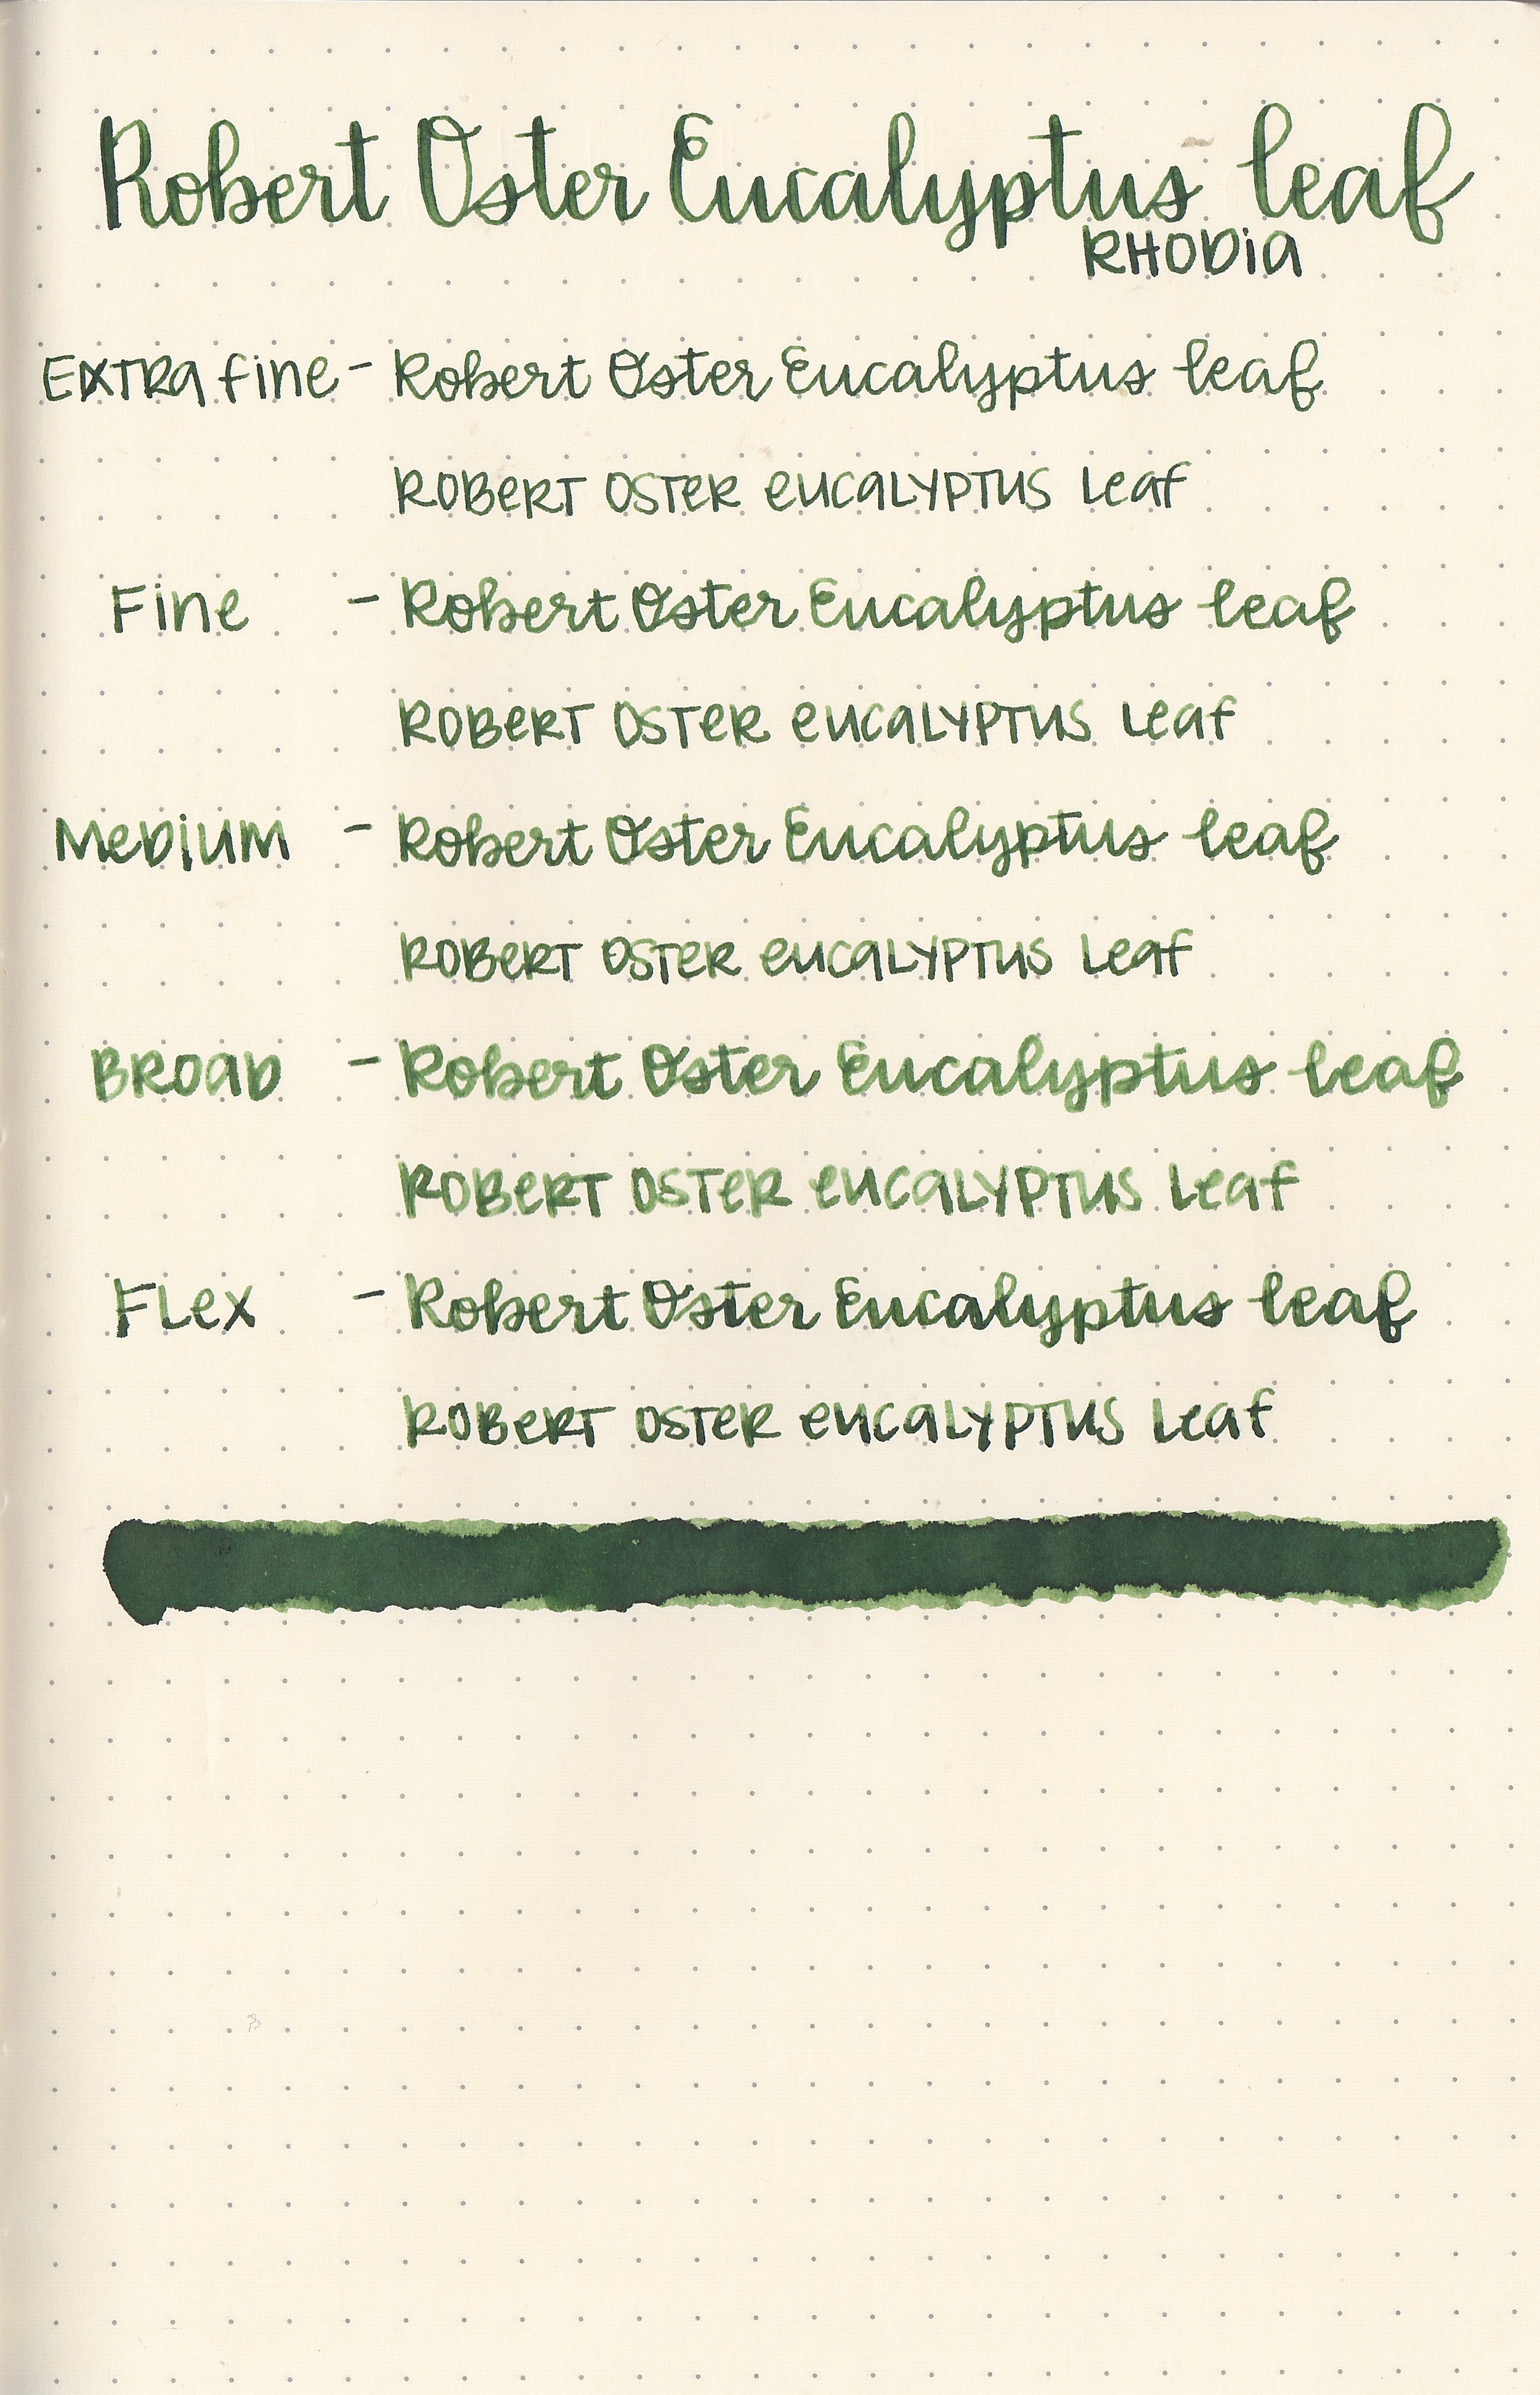 Robert Oster Eucalyptus leaf
RHODIA
EXTRA fine - Robert Oster Eucalyptus leaf
ROBERT OSTER eucaLYPTUS Leaf
Fine - Robert Oster Eucalyptus leaf
ROBERT OSTER eucaLYPTUS Leaf
MeDiUM - Robert Oster Eucalyptus leaf
ROBERT OSTER eucaLYPTUS Leaf
BROAD - Robert Oster Eucalyptus leaf
ROBERT OSTER eucaLYPTUS Leaf
FLex - Robert Oster Eucalyptus leaf
ROBERT OSTER eucaLYPTUS Leaf